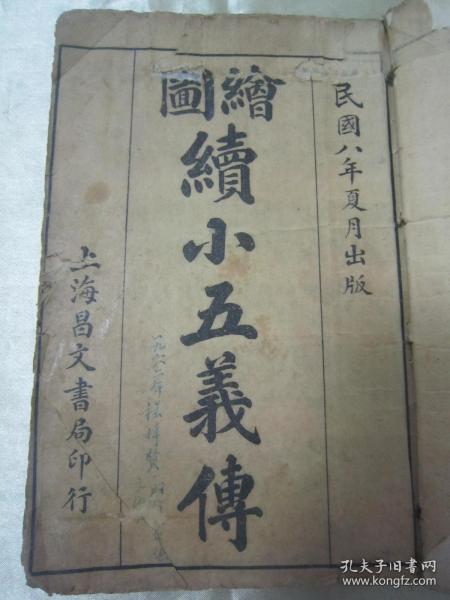 民國八年夏月出版
繪圖
續小五義傳
上海昌文書局印行
孔夫子旧书网
www.kongfz.com